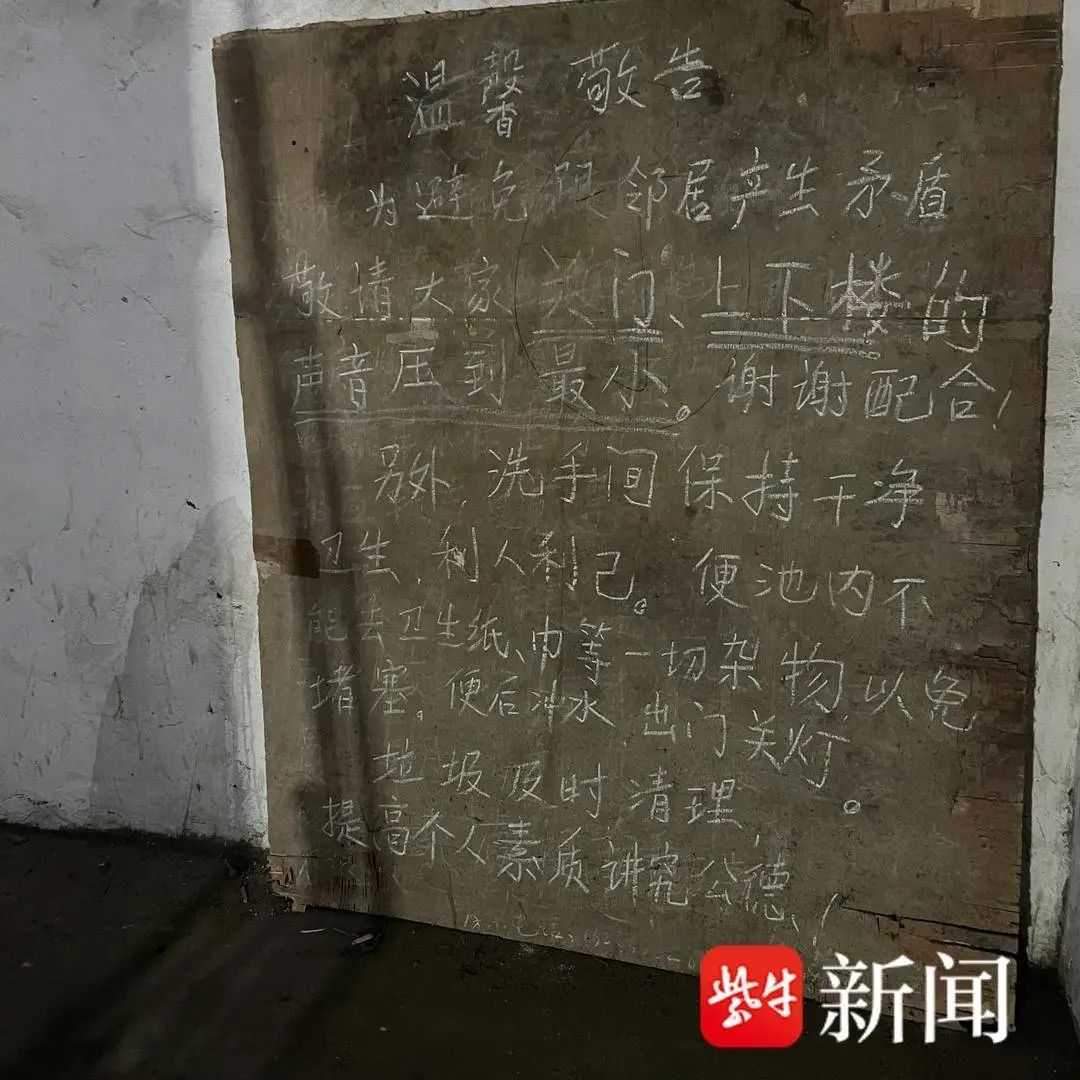 温馨敬告
为避免跟邻居产生矛盾
敬请大家关门、上下楼的
声音压到最小。谢谢配合!
另外,洗手间保持干净
卫生,利人利己。便池内不
能丢卫生纸、巾等一切杂物,以免
堵塞。便后冲水,出门关灯。
垃圾及时清理,
提高个人素质讲究公德!
紫牛新闻